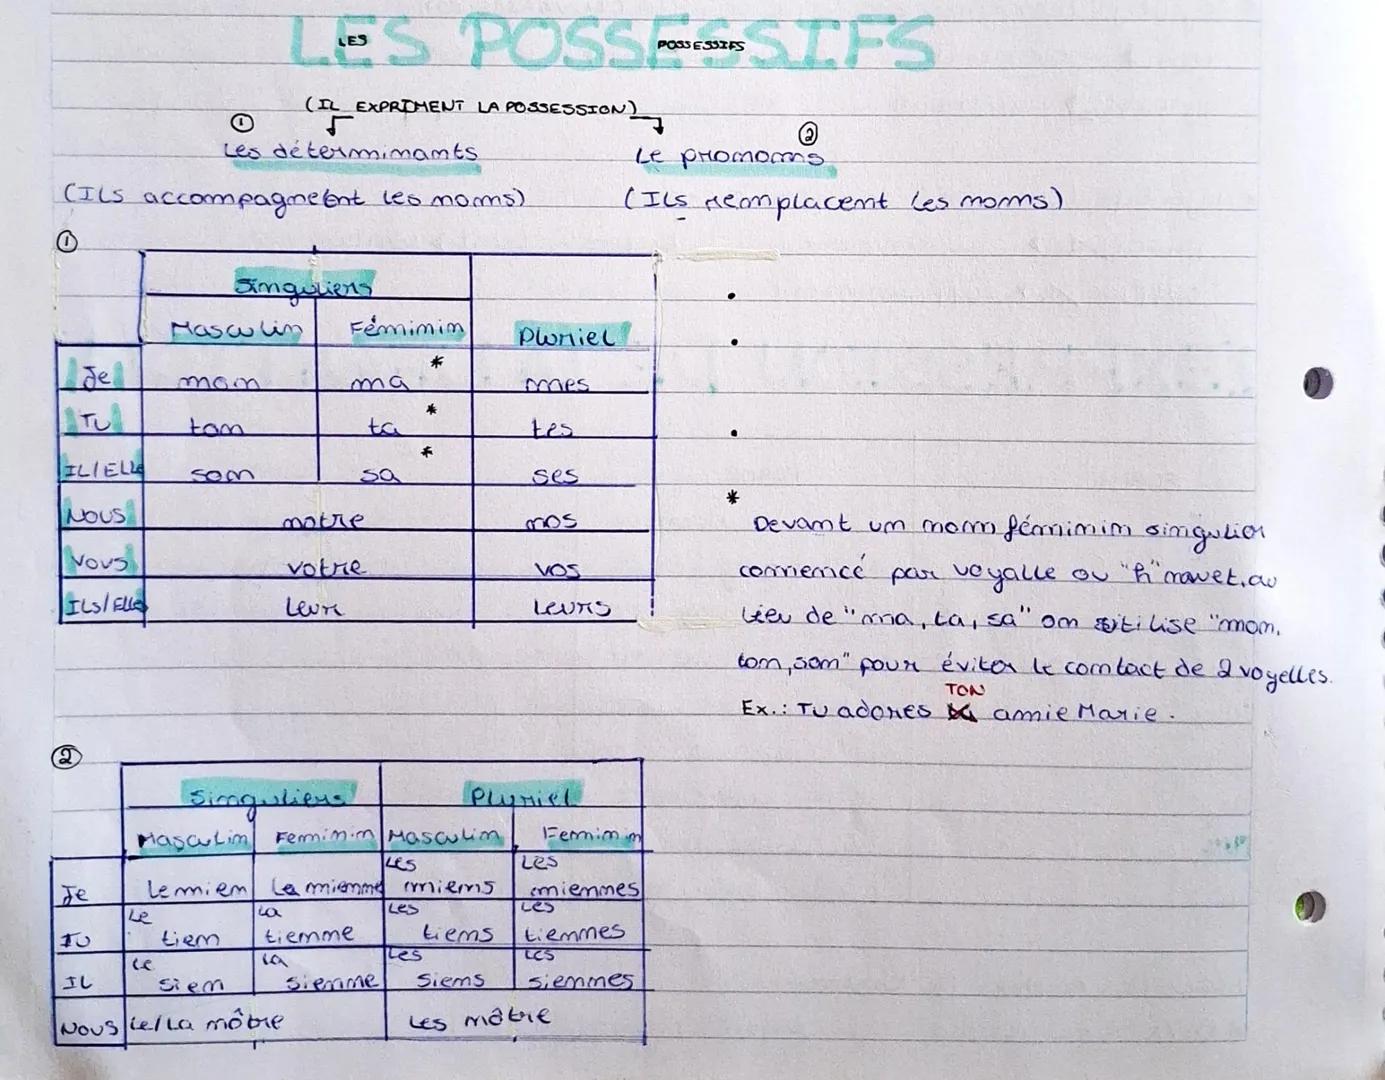 LES POSSESSIFS
LES POSSESSIFS
(IL EXPRIMENT LA POSSESSION)
① ②
Les déterminants Le pronoms
(Ils accompagnent les noms) (Ils remplacent les noms)
①
Singuliers
Masculin Féminin Pluriel
Je mon ma * mes
Tu ton ta * tes
IL/Elle son sa * ses
Nous notre nos
Vous votre vos
ILs/Elles Leur Leurs
*
Devant un nom féminin singulier
commencé par voyalle ou "h" muet, au
lieu de "ma, ta, sa" on utilise "mon,
ton, son" pour éviter le contact de 2 voyelles.
TON
Ex.: Tu adores ta amie Marie.
②
Singuliers Pluriel
Masculin Feminin Masculin Feminin
Je Le mien La mienne Les miens Les miennes
Tu Le tien La tienne Les tiens Les tiennes
IL Le sien La sienne Les siens Les siennes
Nous Le/La nôtre Les nôtre